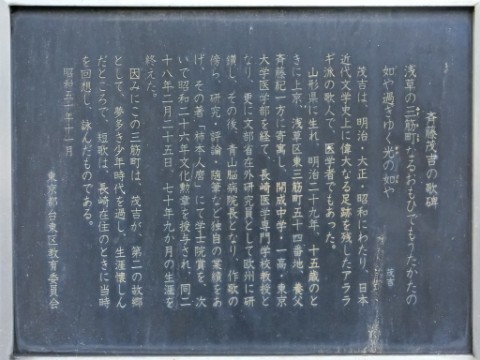 斉藤茂吉の歌碑
浅草の三筋町なるおもひでもうたかたの
如や過ぎゆく光の如や
茂吉
茂吉は、明治・大正・昭和にわたり、日本
近代文学史上に偉大なる足跡を残したアララ
ギ派の歌人で、医学者でもあった。
山形県に生れ、明治二十九年、十五歳のと
きに上京、浅草区東三筋町五十四番地、養父
斉藤紀一方に寄寓し、開成中学・一高・東京
大学医学部を経て、長崎医学専門学校教授と
なり、更に文部省在外研究員として欧州に研
鑚し、その後、青山脳病院長となり、作歌の
傍ら、研究・評論・随筆など独自の業績をあ
げ、その著「柿本人麿」にて学士院賞を、次
いで昭和二十六年文化勲章を授与され、同二
十八年二月二十五日、七十年九か月の生涯を
終えた。
因みにこの三筋町は、茂吉が、第二の故郷
として、夢多き少年時代を過し、生涯懐しん
だところで、短歌は、長崎在住のときに当時
を回想し、詠んだものである。
昭和五十年十一月
東京都台東区教育委員会